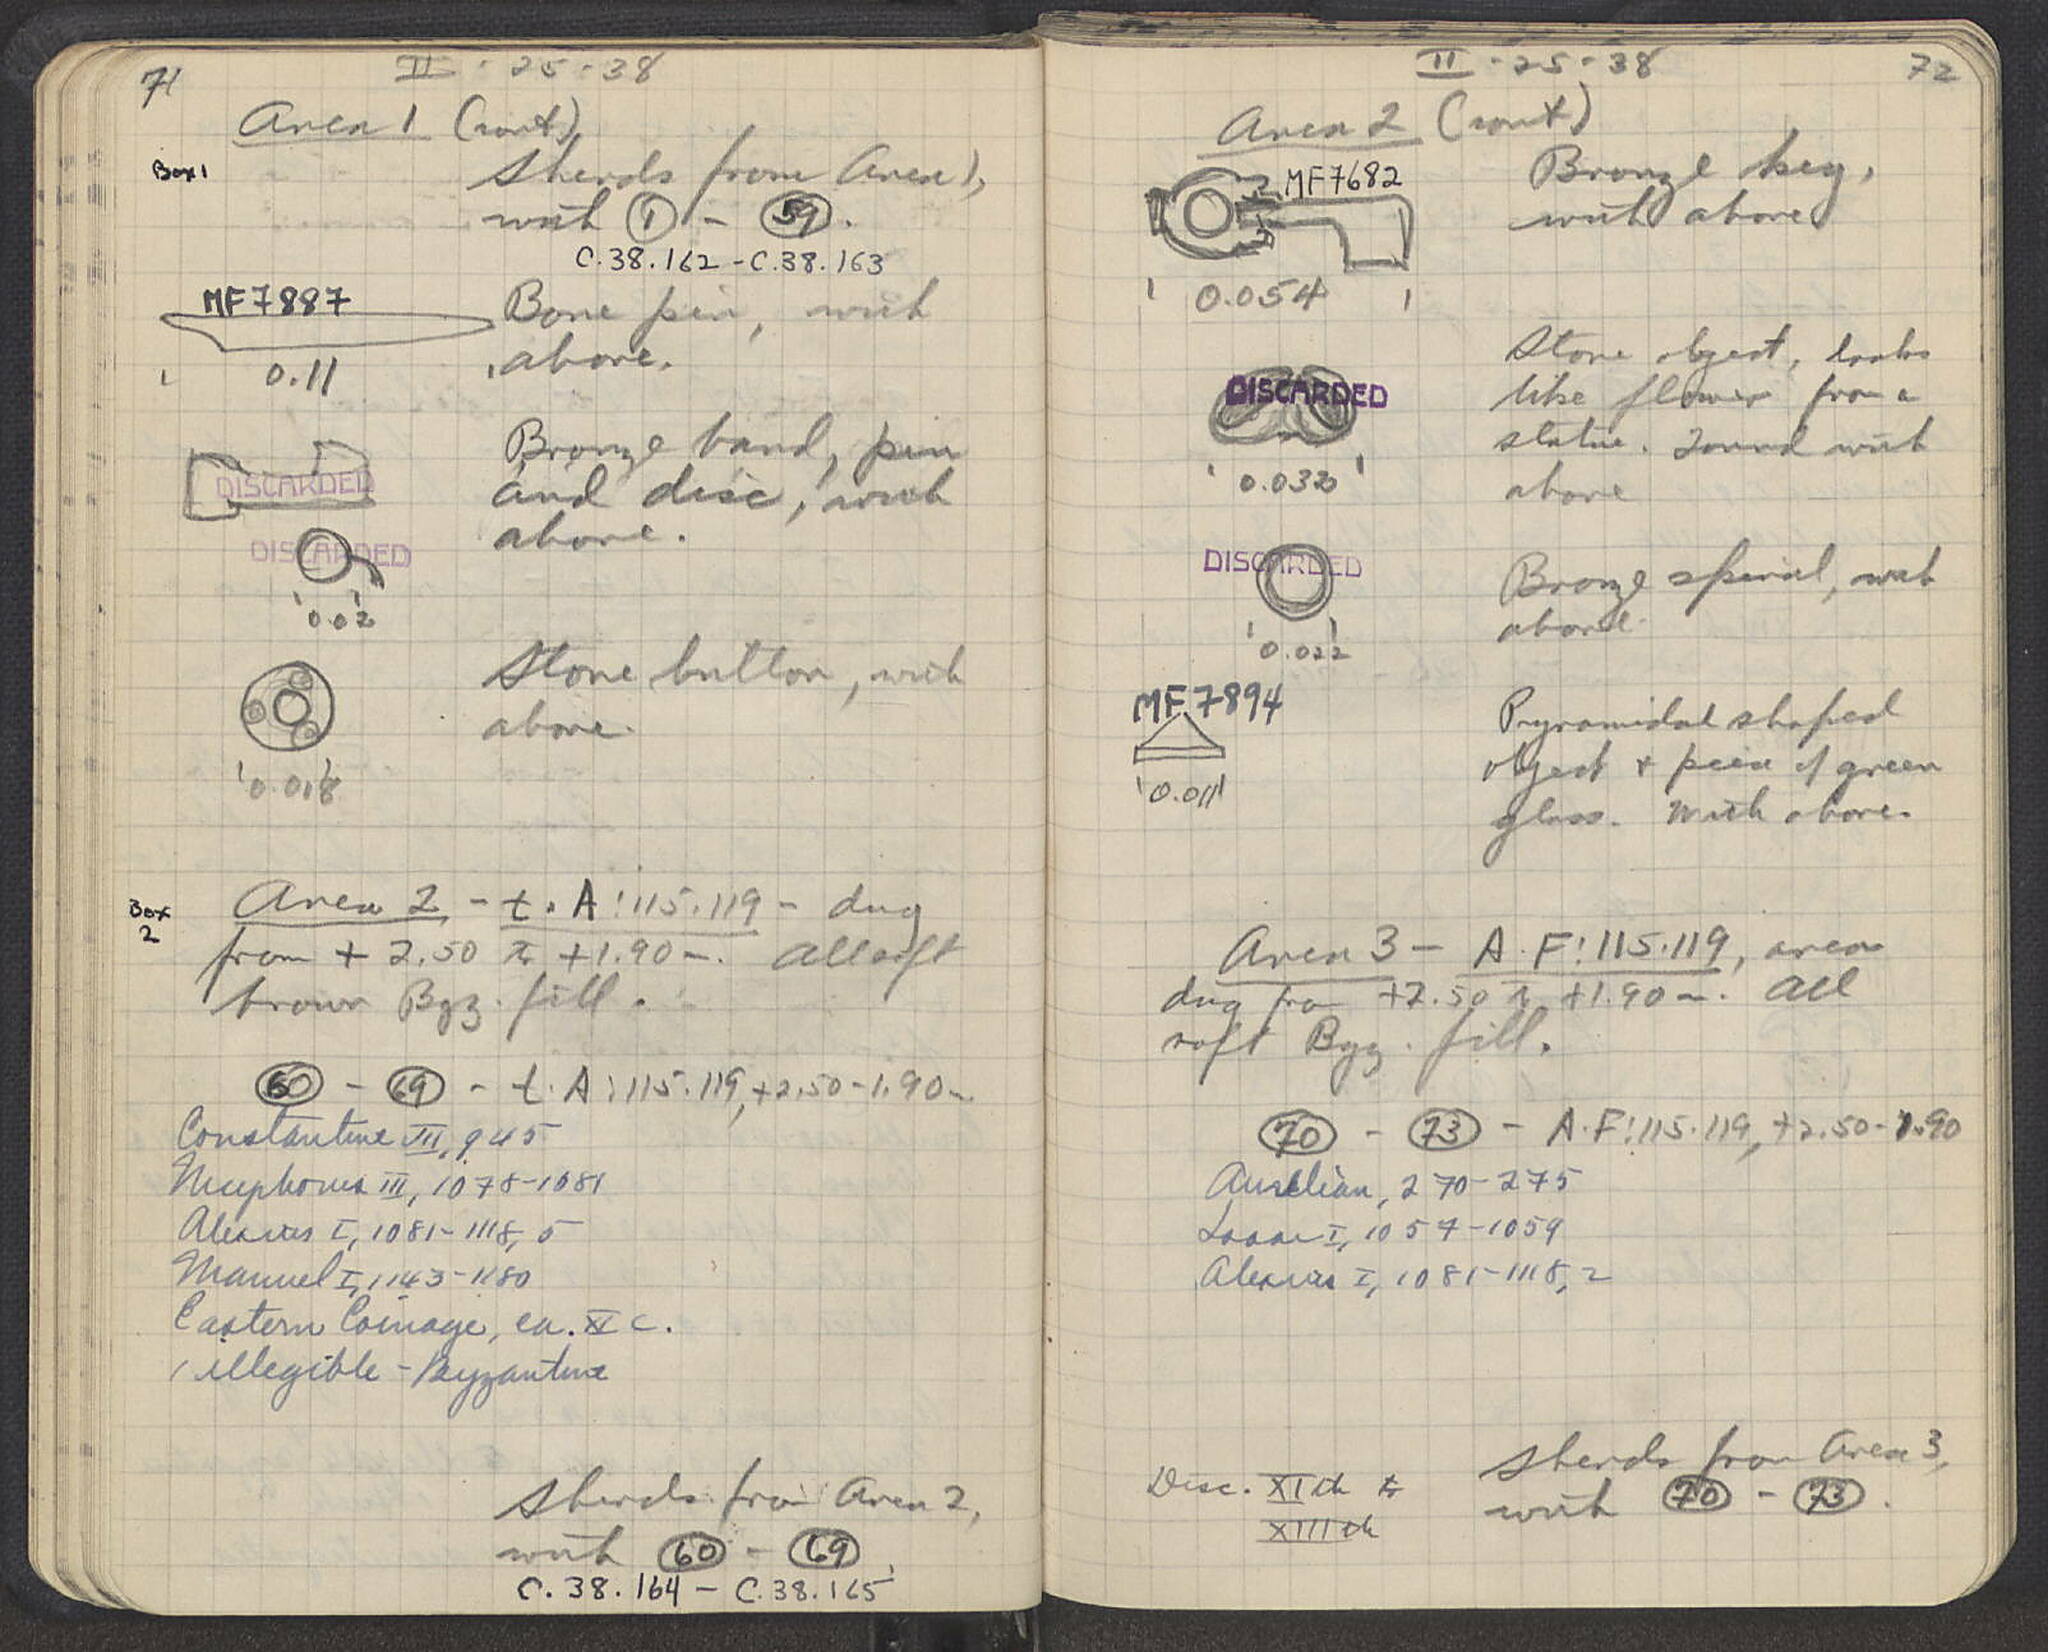 71
II - 25 - 38
Area 1 (cont)
Box 1
Sherds from Area 1,
with 1 - 59.
C.38.162 - C.38.163
MF7887
0.11
Bone pin, with
above.
DISCARDED
DISCARDED
0.02
Bronze band, pin
and disc, with
above.
0.018
Stone button, with
above.
Box
2
Area 2 - t. A:115.119 - dug
from + 2.50 to +1.90 m. All soft
brown Byz. fill.
60 - 69 - t. A:115.119, +2.50 - 1.90 m
Constantine VII, 945
Nicephorus III, 1078-1081
Alexius I, 1081-1118, 5
Manuel I, 1143-1180
Eastern Coinage, ca. XI c.
1 illegible - Byzantine
Sherds from Area 2,
with 60 - 69,
C.38.164 - C.38.165
II - 25 - 38
72
Area 2 (cont)
MF7682
0.054
Bronze key,
with above
DISCARDED
0.032
Stone object, looks
like flower from a
statue. Found with
above
DISCARDED
0.022
Bronze spiral, with
above.
MF7894
0.011
Pyramidal shaped
object + piece of green
glass. With above.
Area 3 - A.F:115.119, area
dug from +2.50 to +1.90 m. All
soft Byz. fill.
70 - 73 - A.F:115.119, +2.50 - 1.90
Aurelian, 270-275
Isaac I, 1057-1059
Alexius I, 1081-1118, 2
Disc. XIth to
XIIIth
Sherds from Area 3,
with 70 - 73.